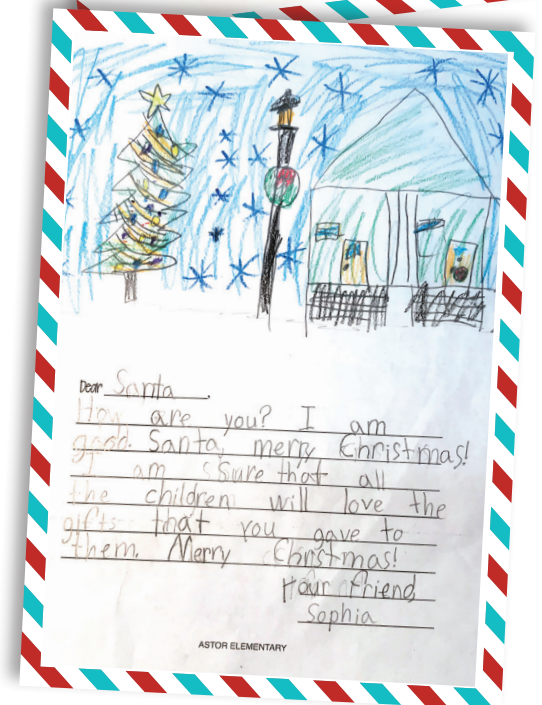 Dear Santa.
How are you? I am
good. Santa, merry Christmas!
I am sSure that all
the children will love the
gifts that you gave to
them. Merry Christmas!
Your Friend
Sophia
ASTOR ELEMENTARY